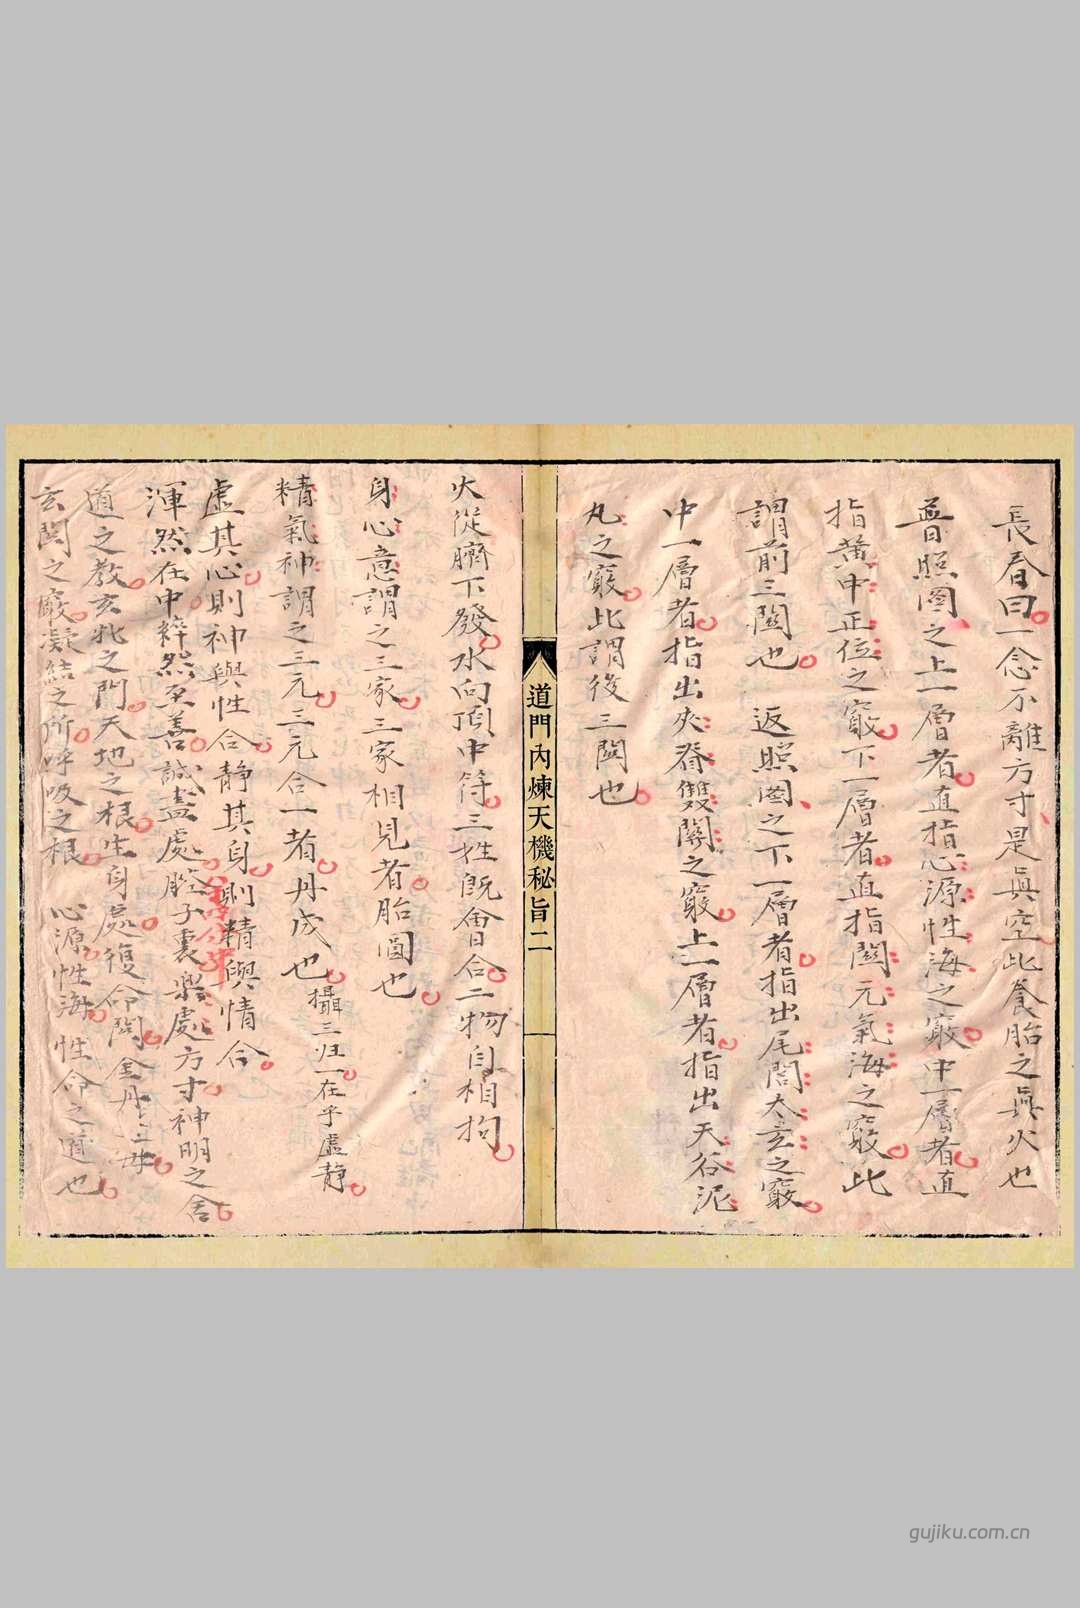 長春曰一念不離方寸是真空此養胎之真火也
普照圖之上一層者直指心源性海之竅中一層者直
指黃中正位之竅下一層者直指關元氣海之竅此
謂前三關也 返照圖之下一層者指出尾閭太玄之竅
中一層者指出夾脊雙關之竅上一層者指出天谷泥
丸之竅此謂後三關也
道門內煉天機秘旨二
火從臍下發水向頂中符三姓既會合二物自相拘
身心意謂之三家三家相見者胎圓也
精氣神謂之三元三元合一者丹成也攝三歸一在乎虛靜
虛其心則神與性合靜其身則精與情合
渾然在中粹然至善誠盡處腔子裏樂處方寸神明之舍
道之教玄牝之門天地之根生身處復命關金丹之母
玄關之竅凝結之所呼吸之根 心源性海性命之道也
gujiku.com.cn